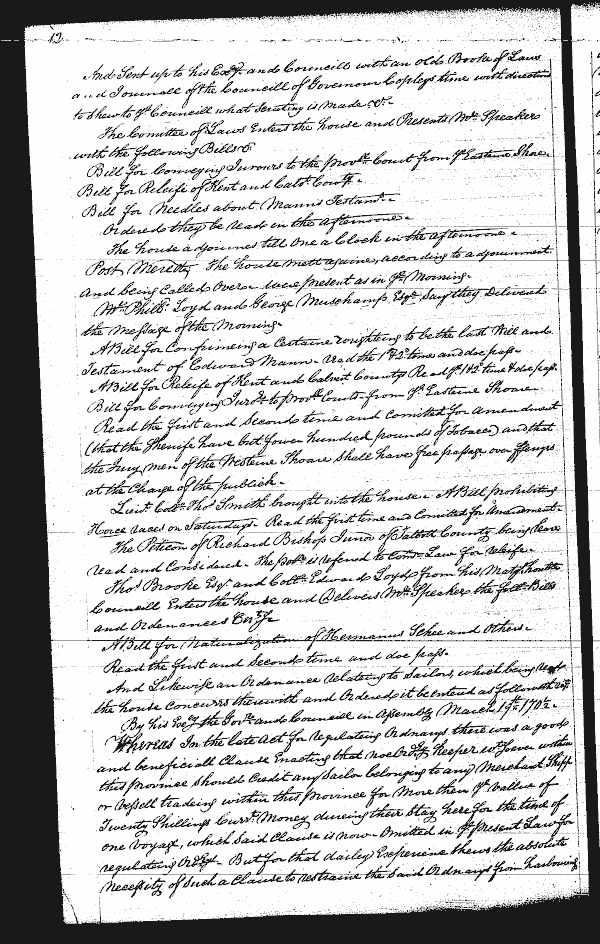 12
And Sent up to his Excy and Councill with an olde Booke of Laws
and Journall of the Councill of Governour Copleys time with direction
to shew to ye Councill what Scrutiny is made &c.
The Comittee of Laws Enters the house and Presents Mr. Speaker
with the following Bills &c
Bill for Conveying Jurours to the Provll. Court from ye Easterne Shoare
Bill for Releife of Kent and Calvt. County.
Bill for Needles about Manns Testamt.
Ordered they be read in the afternoone.
The house adjournes till One a Clock in the afternoone.
Post Meredie. The house mett againe, according to adjournment
And being Called Over were present as in ye Morning.
Mr. Phill: Loyd and George Muschamp Esqr. Say they Delivered
the message of the Morning.
A Bill for Confirmeing a Certaine wrighting to be the last Will and
Testament of Edward Mann. read the 1st & 2d time and doe pass.
A Bill for Releife of Kent and Calvert Countys Read ye 1 & 2 time & doe pass
Bill for Conveying Jurors to Provll Courts from ye Easterne Shoare
Read the first and Second time and Comitted for Amendment
(that the Sherriffs have but fower hundred pounds of Tobacco) and that
the Jury men of the Westerne Shoare Shall have free passage over fferrys
at the Charge of the publick.
Lieut. Collo. Thos. Smith brought into the house. A Bill prohibiting
Horse races on Saturdays. Read the first time and Comitted for Amendment.
The Peticon of Richard Bishop Junor of Talbott County being here
read and Considered. The petr. is referred to Law for releife.
Thos. Brooke Esqr. and Collo. Edward Loyd from his Matys honble
Councill Enters the house and Delivers Mr. Speaker the foll: Bills
and Ordenances
A Bill for Naturalization of Hermanus Schee and Others.
Read the first and Second time and doe pass.
And Likewise an Ordenance relating to Sailors, which being read
the house concurrs therewith and Ordered it be entered as followeth vizt
By his Excy the Govr. and Councill in Assembly March 19th. 1702.
Whereas In the late Act for regulating Ordnarys there was a good
and beneficiall Clause Enacting that noe Ordry Keeper wtsoever within
this province Should Credit any Sailor belonging to any Merchant Shipp
or Vessell trading within this Province for More then ye vallue of
Twenty Shillings Currt. Money dureing their Stay here for the time of
one Voyage, which Said Clause is now Omitted in ye present Law for
regulating Ordrys. But for that dailey Experience Shews the absolute
Necessity of Such a Clause to restraine the Said Ordnarys from harbouring